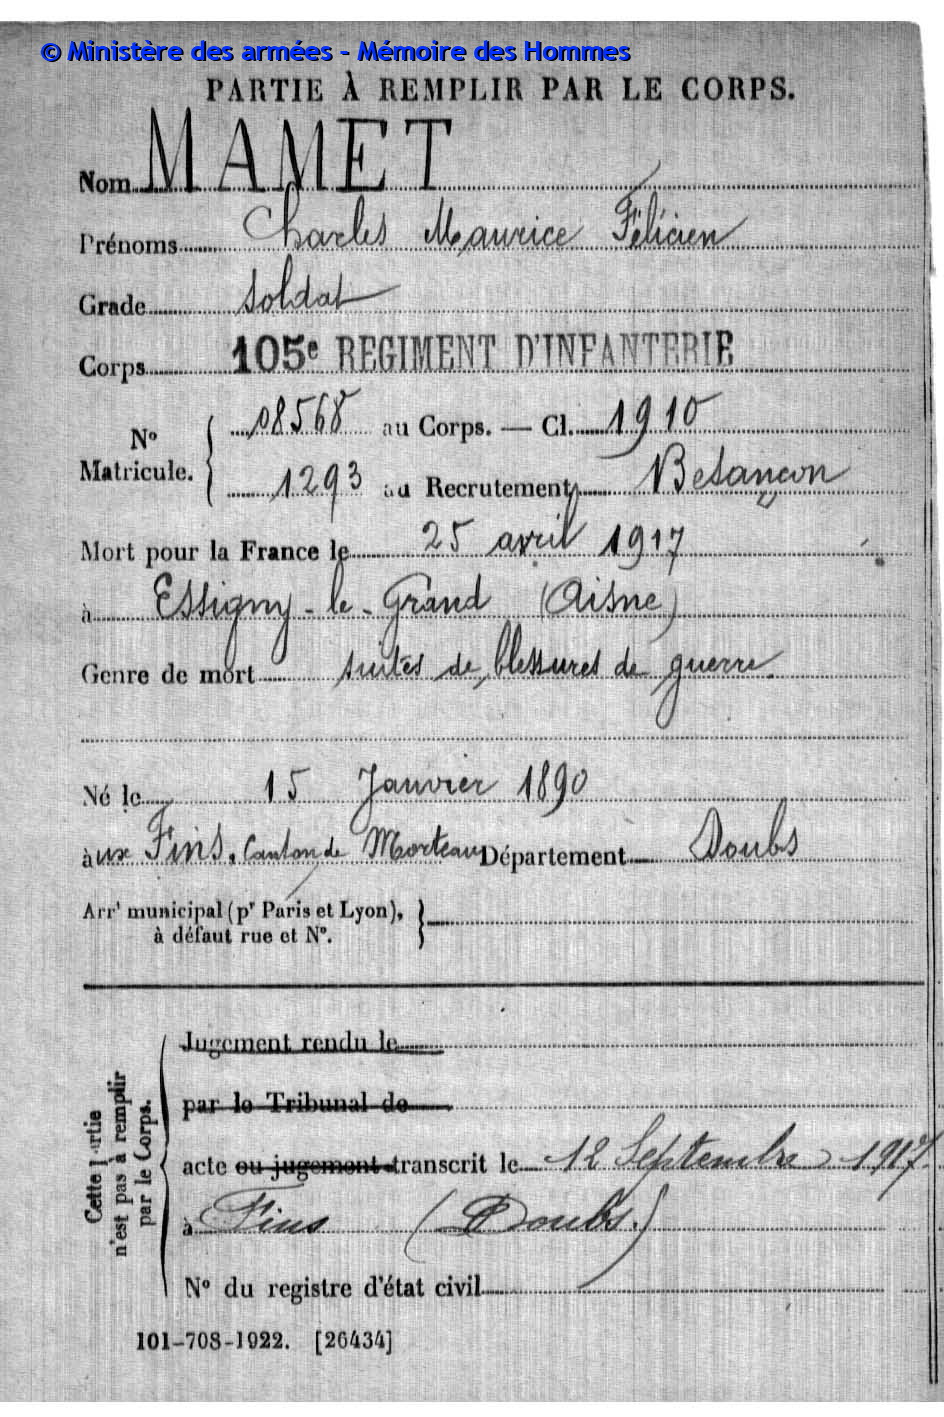 © Ministère des armées - Mémoire des Hommes
PARTIE À REMPLIR PAR LE CORPS.
Nom MAMET
Prénoms Charles Maurice Félicien
Grade soldat
Corps 105e REGIMENT D'INFANTERIE
No Matricule. { 08568 au Corps. — Cl. 1910
1293 au Recrutement Besançon
Mort pour la France le 25 avril 1917
à Essigny-le-Grand (Aisne)
Genre de mort suites de blessures de guerre.
Né le 15 Janvier 1890
aux Fins, Canton de Morteau Département Doubs
Arrt municipal (pr Paris et Lyon),
à défaut rue et No.
Cette partie n'est pas à remplir par le Corps.
Jugement rendu le
par le Tribunal de
acte ou jugement transcrit le 12 Septembre 1917
à Fins (Doubs.)
No du registre d'état civil
101-708-1922. [26434]